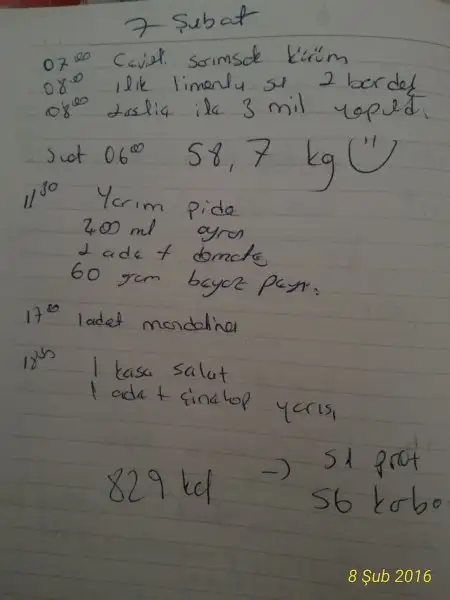 7 Şubat
07⁰⁰ sarımsak kürüm
08⁰⁰ ılık limonlu su 2 bardak
08⁰⁰ ile 3 mil yapıldı.
Saat 06⁰⁰ 58,7 kg
11³⁰ Yarım pide
200 ml ayran
1 adet domates
60 gram beyaz peyn.
17⁰⁰ 1 adet mandalina
1 kase salat
1 adet çinakop yarısı
829 kcl → 51 prot
56 karbo
8 Şub 2016